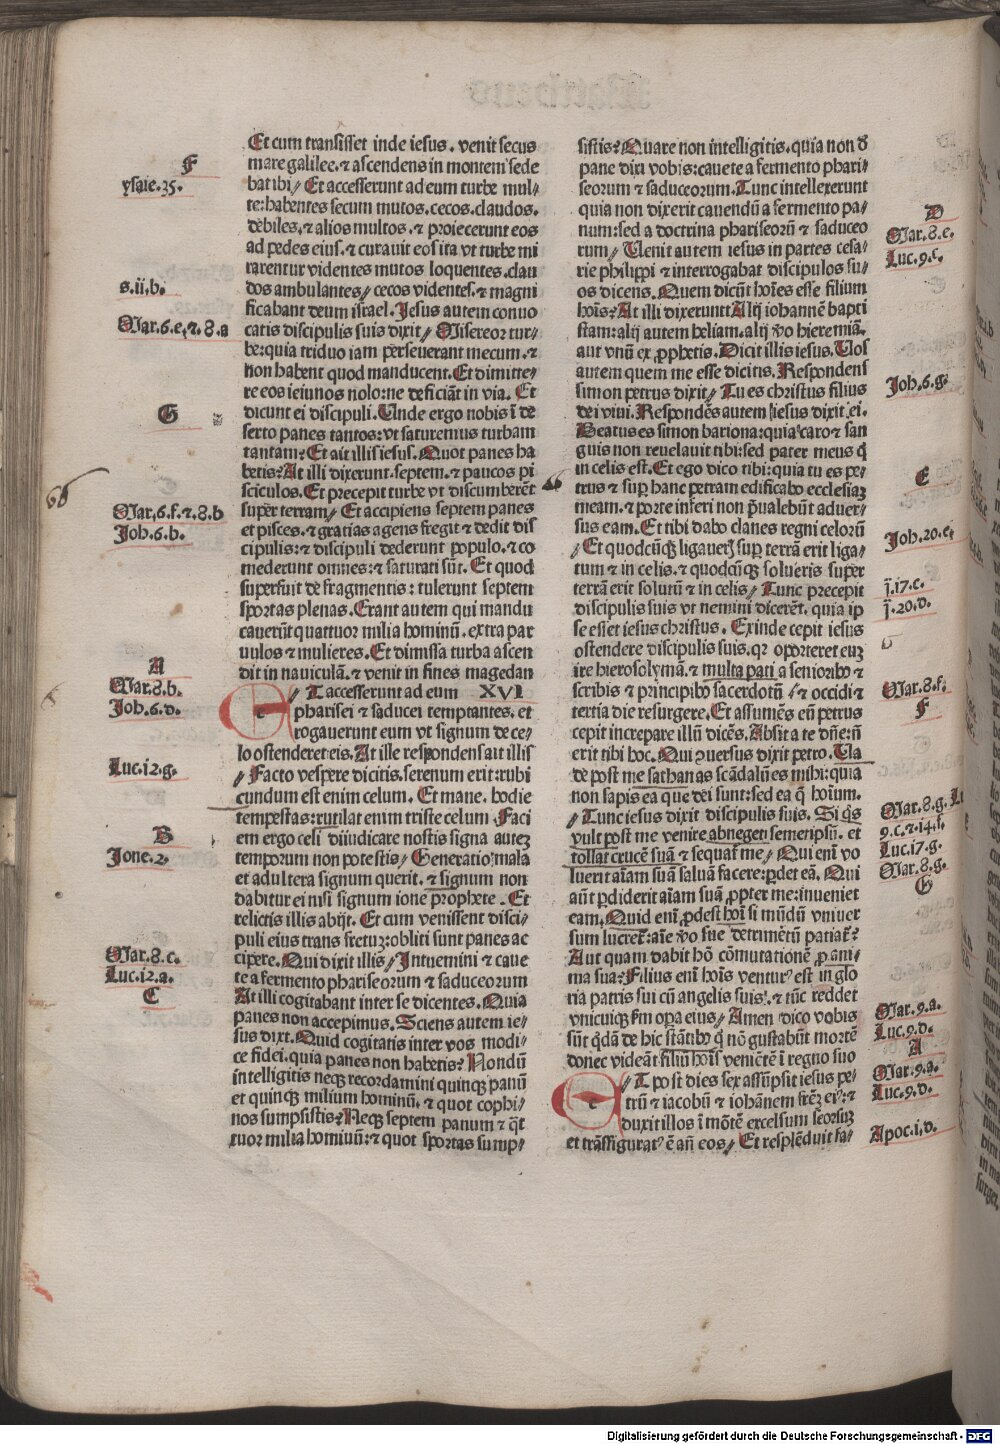 Et cum transisset inde iesus. venit secus
mare galilee. ⁊ ascendens in montem sede
bat ibi // Et accesserunt ad eum turbe mul//
te: habentes secum mutos. cecos. claudos.
debiles. ⁊ alios multos. ⁊ proiecerunt eos
ad pedes eius. ⁊ curauit eos ita vt turbe mi
rarentur videntes mutos loquentes. clau
dos ambulantes // cecos videntes. ⁊ magni
ficabant deum israel. Jesus autem conuo
catis discipulis suis dixit // Misereor tur//
be: quia triduo iam perseuerant mecum. ⁊
non habent quod manducent. Et dimitte//
re eos ieiunos nolo: ne deficiāt in via. Et
dicunt ei discipuli. Unde ergo nobis ī de
serto panes tantos: vt saturemus turbam
tantam? Et ait illis iesus. Quot panes ha
betis? At illi dixerunt. septem. ⁊ paucos pi
sciculos. Et precepit turbe vt discumberēt
super terram // Et accipiens septem panes
et pisces. ⁊ gratias agens fregit ⁊ dedit dis
cipulis: ⁊ discipuli dederunt populo. ⁊ co
mederunt omnes: ⁊ saturati sūt. Et quod
superfuit de fragmentis: tulerunt septem
sportas plenas. Erant autem qui mandu
cauerūt quattuor milia hominū. extra par
uulos ⁊ mulieres. Et dimissa turba ascen
dit in nauiculā. ⁊ venit in fines magedan
// Et accesserunt ad eum XVI
pharisei ⁊ saducei temptantes. et
rogauerunt eum vt signum de ce//
lo ostenderet eis. At ille respondens ait illis
// Facto vespere dicitis. serenum erit: rubi
cundum est enim celum. Et mane. hodie
tempestas: rutilat enim triste celum. Faci
em ergo celi diiudicare nostis signa autez
temporum non potestis // Generatio mala
et adultera signum querit. ⁊ signum non
dabitur ei nisi signum ione prophete. Et
relictis illis abijt. Et cum venissent disci//
puli eius trans fretuz: obliti sunt panes ac
cipere. Qui dixit illis // Intuemini ⁊ caue
te a fermento phariseorum ⁊ saduceorum
At illi cogitabant inter se dicentes. Quia
panes non accepimus. Sciens autem ie//
sus dixt. Quid cogitatis inter vos modi//
ce fidei. quia panes non habetis? Nondū
intelligitis neqz recordamini quinqz panū
et quinqz milium hominū. ⁊ quot cophi//
nos sumpsistis? Neqz septem panum ⁊ q̄t
tuor milia hominū: ⁊ quot sportas sump//
sistis? Quare non intelligitis. quia non đ
pane dixi vobis: cauete a fermento phari//
seorum ⁊ saduceorum. Tunc intellexerunt
quia non dixerit cauendū a fermento pa//
num: sed a doctrina phariseorū ⁊ saduceo
rum // Uenit autem iesus in partes cesa//
rie philippi ⁊ interrogabat discipulos su//
os dicens. Quem dicūt hoīes esse filium
hoīs? At illi dixerunt. Alij iohannē bapti
stam: alij autem heliam. alij vo hieremiā.
aut vnū ex prophetis. Dicit illis iesus. Uos
autem quem me esse dicitis. Respondens
simon petrus dixit // Tu es christus filius
dei viui. Respondēs autem iesus dixit ei.
Beatus es simon bariona: quia caro ⁊ san
guis non reuelauit tibi: sed pater meus q̄
in celis est. Et ego dico tibi: quia tu es pe//
trus ⁊ sup hanc petram edificabo ecclesiaz
meam. ⁊ porte inferi non pualebūt aduer//
sus eam. Et tibi dabo claues regni celorū
// Et quodcūqz ligaueris sup terrā erit liga//
tum ⁊ in celis. ⁊ quodcūqz solueris super
terrā erit solutū ⁊ in celis // Tunc precepit
discipulis suis vt nemini dicerēt. quia ip
se esset iesus christus. Exinde cepit iesus
ostendere discipulis suis. qr oporteret euz
ire hierosolymā. ⁊ multa pati a senioribꝰ ⁊
scribis ⁊ principibꝰ sacerdotū ⁊ occidi ⁊
tertia die resurgere. Et assumēs eū petrus
cepit increpare illum dicēs. Absit a te dn̄e: n̄
erit tibi hoc. Qui ↄuersus dixit petro. Va
de post me sathanas scādalū es mihi: quia
non sapis ea que dei sunt: sed ea q̄ hoīum.
// Tunc iesus dixit discipulis suis. Si q̇s
vult post me venire abneget semetipsū. et
tollat crucē suā ⁊ sequat̄ me // Qui enī vo
luerit aīam suā saluā facere: pdet eā. Qui
aūt pdiderit aīam suā propter me: inueniet
eam. Quid enī prodest hoī si mūdū vniuer
sum lucret̄: aīe vo sue detrimētū patiat̄?
Aut quam dabit hō cōmutationē pro ani//
ma sua? Filius enī hoīs venturꝰ est in glo
ria patris sui cū angelis suis. ⁊ tūc reddet
vnicuiqz fm opa eius // Amen dico vobis
sūt q̇dā de hic stātibꝰ q̄ nō gustabūt mortē
donec videāt filiū hoīs veniētē ī regno suo
// Et post dies sex assūpsit iesus pe//
trū ⁊ iacobū ⁊ iohānem frēz eiꝰ: ⁊
duxit illos ī mōtē excelsum seorsuz
et trāsfiguratꝰ ē añ eos // Et resplēduit fa//
F
ysaie.35.
s.ii.b.
Mar.6.e.⁊.8.a
G
66
Mar.6.f.⁊.8.b
Joh.6.b.
A
Mar.8.b.
Joh.6.d.
Luc.12.g.
B
Jone.2.
Mar.8.c.
Luc.12.a.
C
D
Mar.8.e.
Luc.9.c.
Joh.6.g.
E
Joh.20.e.
j.17.c.
j.20.d.
Mar.8.f.
F
Mar.8.g. L
9.c.⁊.14.f.
Luc.17.g.
Mar.8.g.
G
Mar.9.a.
Luc.9.d.
A
Mar.9.a.
Luc.9.d.
Apoc.i.d.
Digitalisierung gefördert durch die Deutsche Forschungsgemeinschaft - DFG